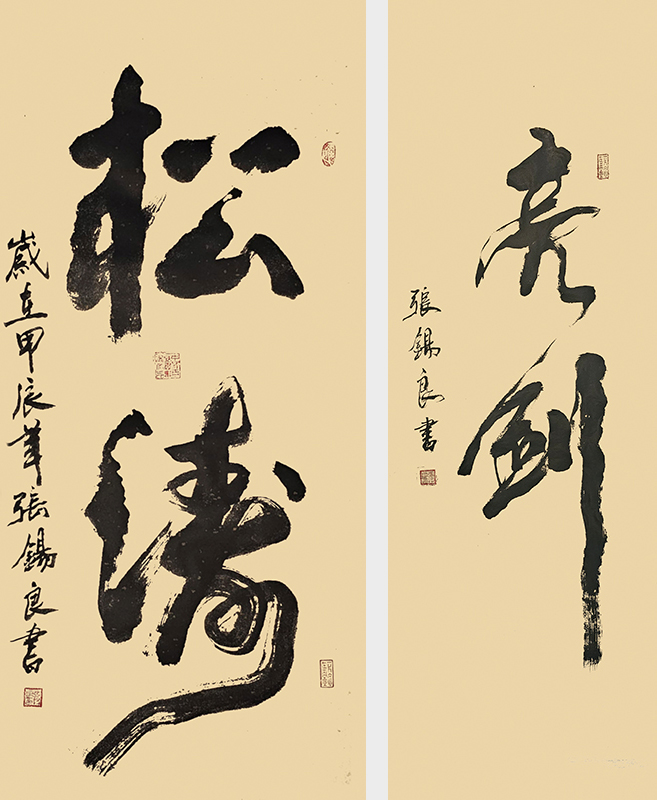 松涛
岁在甲辰年張錫良書
亮剑
張錫良書